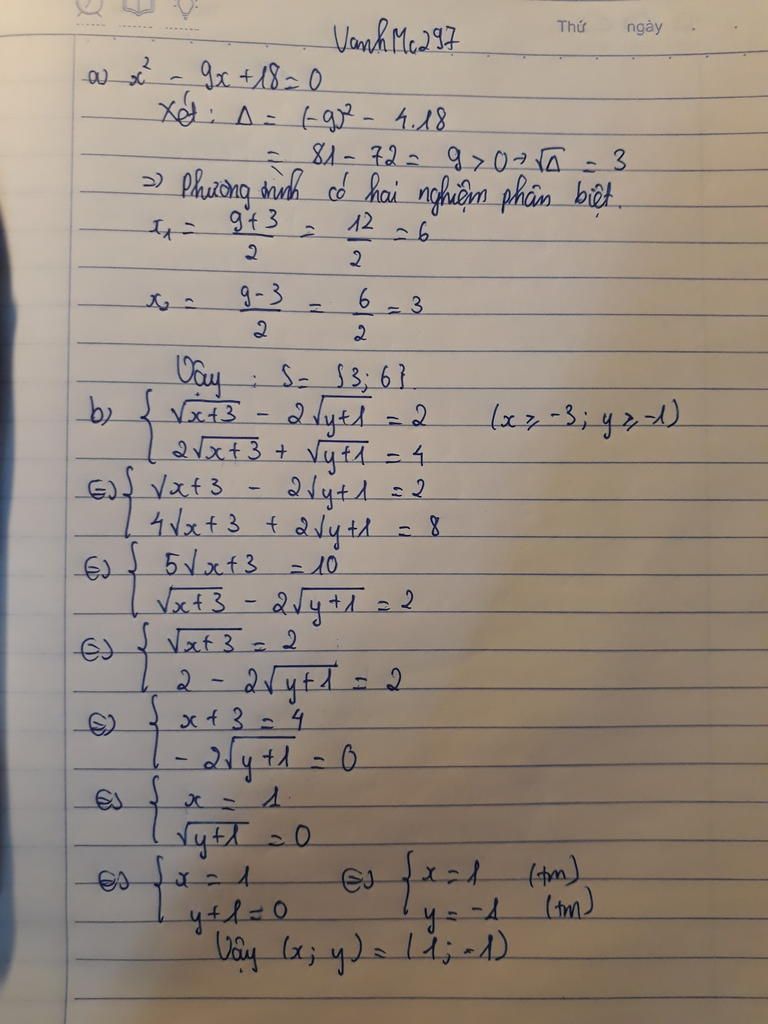 Thứ ngày
VanhMc297
a) x² - 9x + 18 = 0
Xét: Δ = (-9)² - 4.18
= 81 - 72 = 9 > 0 → √Δ = 3
=) Phương trình có hai nghiệm phân biệt.
x₁ = (9+3)/2 = 12/2 = 6
x₂ = (9-3)/2 = 6/2 = 3
Vậy : S = {3; 6}.
b) { √(x+3) - 2√(y+1) = 2 (x ≥ -3; y ≥ -1)
2√(x+3) + √(y+1) = 4
(=) { √x+3 - 2√y+1 = 2
4√x+3 + 2√y+1 = 8
(=) { 5√x+3 = 10
√(x+3) - 2√(y+1) = 2
(=) { √(x+3) = 2
2 - 2√(y+1) = 2
(=) { x + 3 = 4
- 2√(y+1) = 0
(=) { x = 1
√(y+1) = 0
(=) { x = 1 (=) { x = 1 (tm)
y+1 = 0 y = -1 (tm)
Vậy (x; y) = (1; -1)